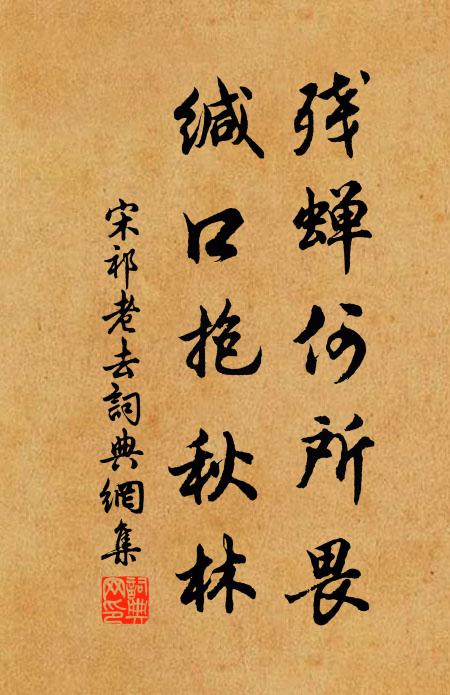 残蝉何所畏
缄口抱秋林
宋祁老去詞典網集
詞典网印